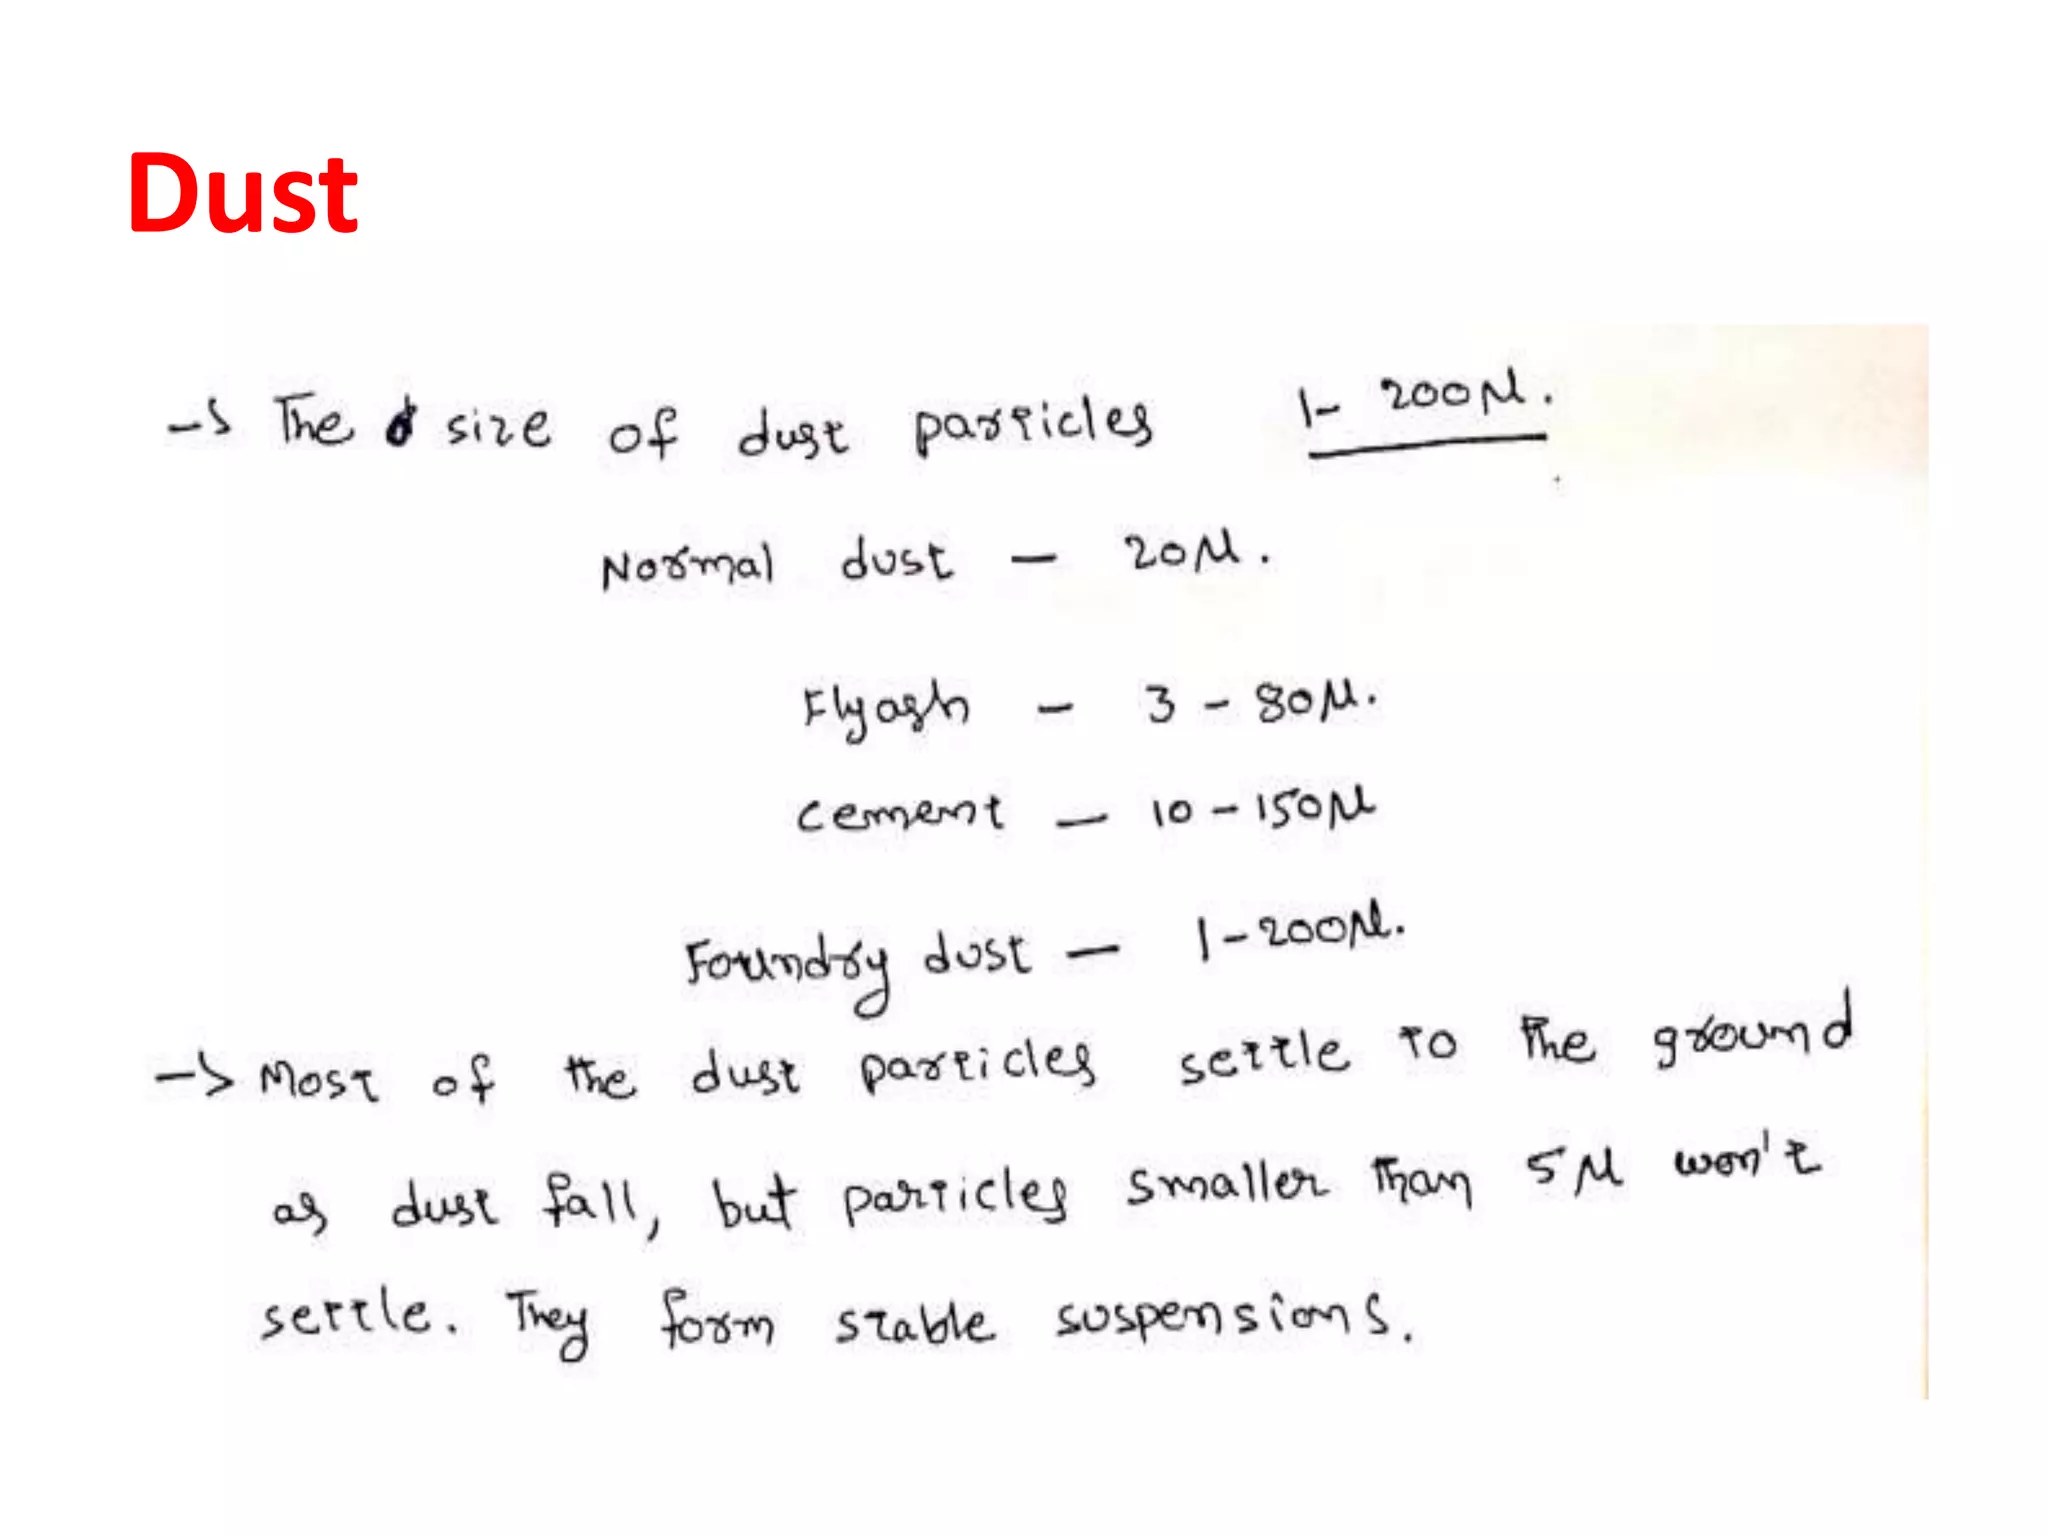 Dust
→ The size of dust particles 1- 200μ.
Normal dust - 20μ.
Flyash - 3 - 80μ.
cement - 10 - 150μ
Foundry dust - 1 - 200μ.
→ Most of the dust particles settle to the ground
as dust fall, but particles smaller than 5μ won't
settle. They form stable suspensions.